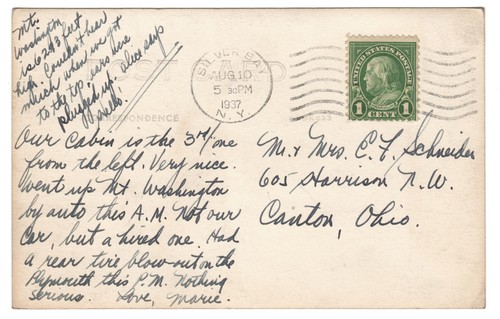 Mt.
Washington
is 6293 feet
high. Couldn't hear
much when we got
to the top, ears were
plugged up. Alice says
"Hello."
POST CARD
CORRESPONDENCE
ADDRESS
SILVER BAY
AUG 10
5 30PM
1937
N.Y.
UNITED STATES POSTAGE
FRANKLIN
1 CENT 1
Our cabin is the 3rd one
from the left. Very nice.
Went up Mt. Washington
by auto this A.M. Not our
car, but a hired one. Had
a rear tire blow out on the
Plymouth this P.M. Nothing
serious. Love, Marie.
Mr & Mrs. C. F. Schneider
605 Harrison N.W.
Canton, Ohio.